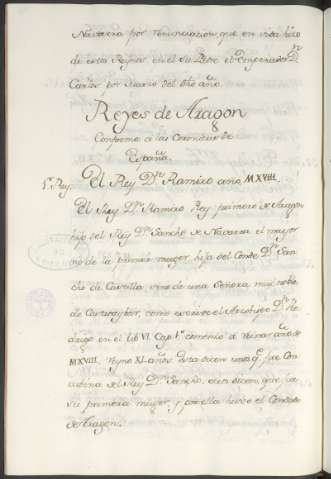 Navarra por renunciacion que en vida hizo
de estos Reynos en el su Padre el Emperador Dn
Carlos por Enero del dho año.
Reyes de Aragon
Conforme a las Coronicas de
España.
1º Rey. El Rey Dn Ramiro año, MXVIII.
El Rey Dn Ramiro Rey primero de Aragon
hijo del Rey Dn Sancho de Navarra el mayor
no de la primera muger, hija del Conde Dn San
cho de Castilla sino de una Señora muy noble
de como escribe el Arzobispo Dn Ro
drigo en el lib VI. Cap. 1º comenzó a reinar año de
MXVIII, Reynó XL años esta dicen unos qe fue Con
cubina del Rey Dn Sancho, otros dicen, que fue
su primera muger, y por ella hubo el Condado
de Aragon.